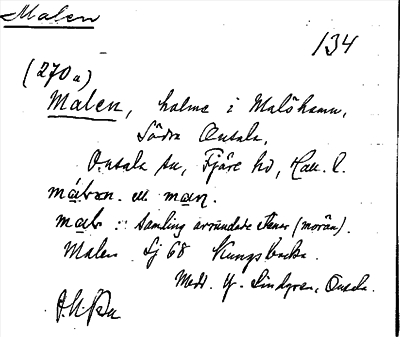 Malen
134
(270a)
Malen, holme i Malöhamn,
Södra Onsala,
Onsala sn, Fjäre hd, Hall. l.
målən. el. maɳ.
mal : samling avrundade stenar (morän).
Malen Sj 68 Kungsbacka.
Medd. Hj. Lindgren, Onsala.